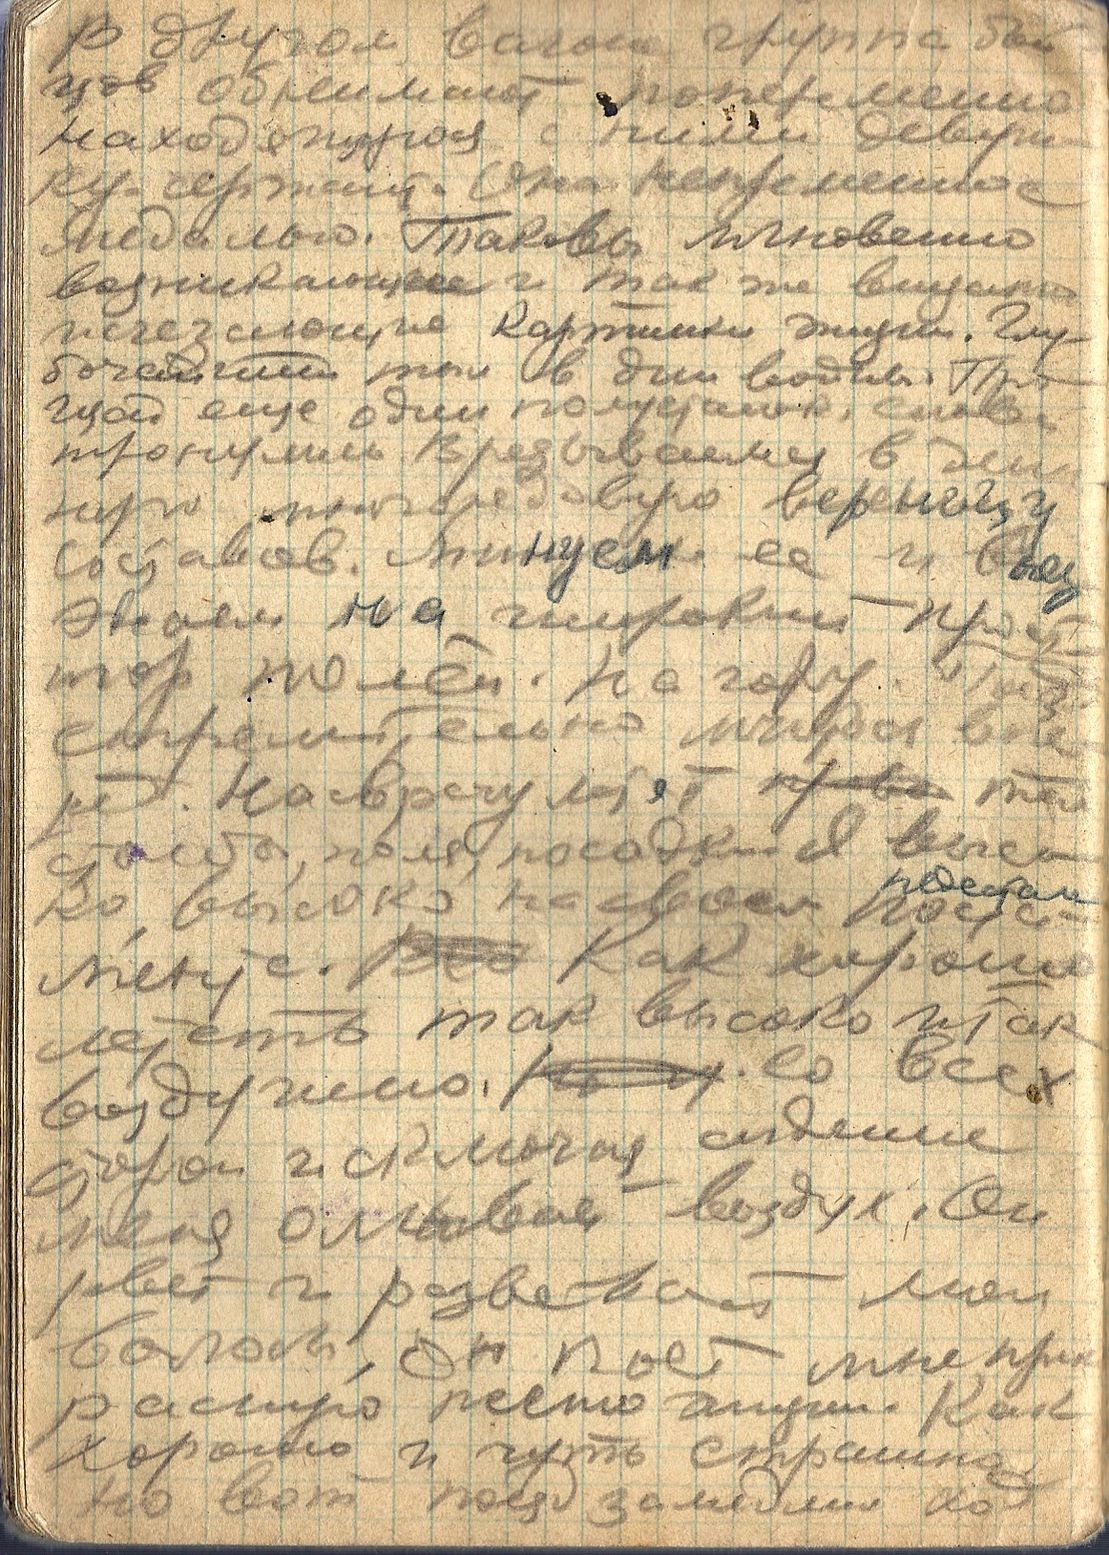 В другом вагоне группа бой
цов обнимают попеременно
находящуюся с ними девуш
ку-сержант. Она непременно с
медалью. Таковы мгновенно
возникающие и так же внезапно
исчезающие картинки жизни. Глу-
бочайший тыл в дни войны. Про
щай еще один полустанок, снова
тронулись врезываемся в длин
ную многорядовую вереницу
составов. Минуем ее и выез
жаем на широкий прос
тор полей. На гору. Поезд
стремительно мчится впе
ред. Навстречу летят тел
столбы, поля, посадки. Я высо
ко, высоко на своем подстам
менте. Как хорошо
лететь так высоко и так
воздушно. Со всех
сторон исключая сидение
меня омывает воздух. Он
рвет и развевает мои
волосы, он поет мне прек
расную песню жизни. Как
хорошо и чуть страшно
но вот поезд замедлил хо